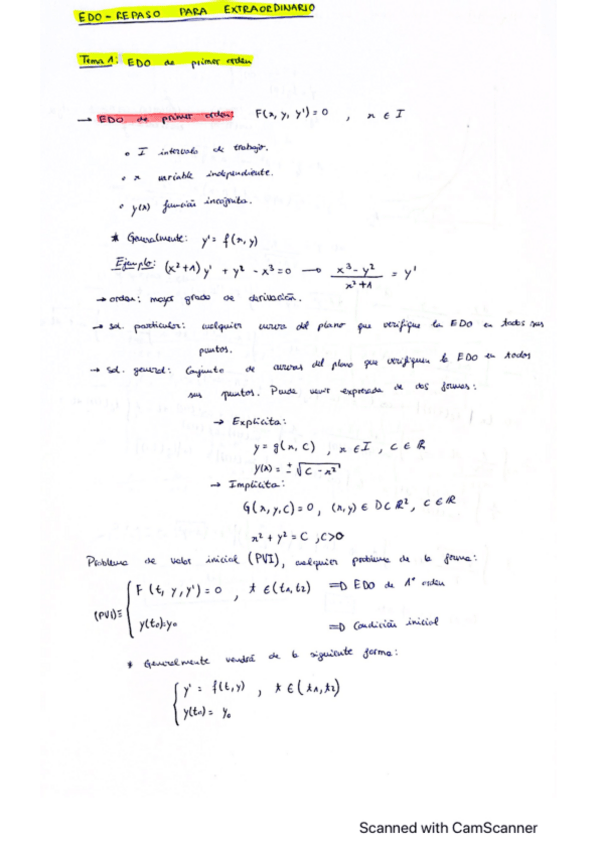 EDO - REPASO PARA EXTRAORDINARIO
Tema 1: EDO de primer orden
→ EDO de primer orden: F(x, y, y') = 0 , x ∈ I
• I intervalo de trabajo.
• x variable independiente.
• y(x) función incógnita.
* Generalmente: y' = f(x, y)
Ejemplo: (x²+1) y' + y² - x³ = 0 → (x³ - y²)/(x²+1) = y'
→ orden: mayor grado de derivación.
→ sol. particular: cualquier curva del plano que verifique la EDO en todos sus
puntos.
→ sol. general: Conjunto de curvas del plano que verifiquen la EDO en todos
sus puntos. Puede venir expresada de dos formas:
→ Explícita:
y = g(x, C) , x ∈ I , C ∈ ℝ
y(x) = ± √(C - x²)
→ Implícita:
G(x, y, C) = 0 , (x, y) ∈ D ⊂ ℝ² , C ∈ ℝ
x² + y² = C , C>0
Problema de valor inicial (PVI), cualquier problema de la forma:
(PVI) ≡ { F(t, y, y') = 0 , t ∈ (t1, t2) ⇒ EDO de 1º orden
y(t0) = y0 ⇒ Condición inicial
* Generalmente vendrá de la siguiente forma:
{ y' = f(t, y) , t ∈ (t1, t2)
y(t0) = y0
Scanned with CamScanner